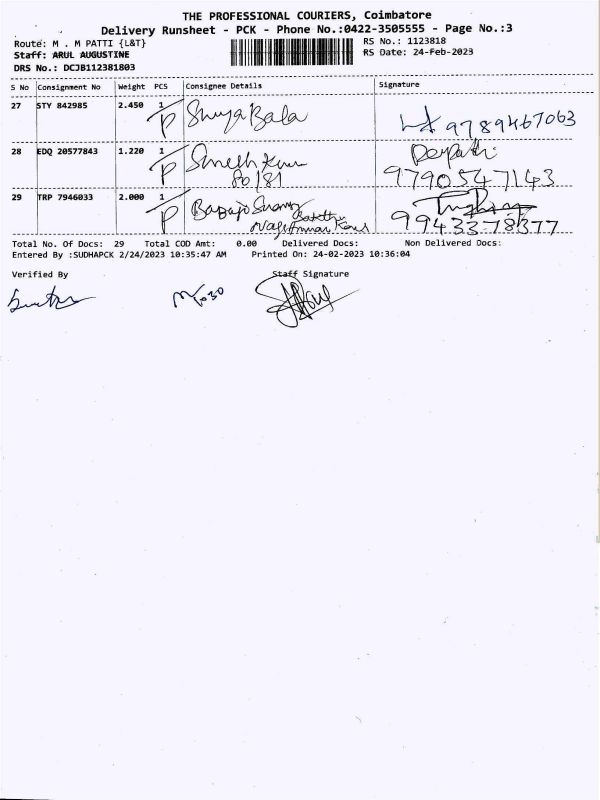 THE PROFESSIONAL COURIERS, Coimbatore
Delivery Runsheet - PCK - Phone No.:0422-3505555 - Page No.:3
Route: M . M PATTI {L&T}
RS No.: 1123818
Staff: ARUL AUGUSTINE
RS Date: 24-Feb-2023
DRS No.: DCJB112381803
S No Consignment No Weight PCS Consignee Details Signature
27 STY 842985 2.450 1 P Bala 9789467063
28 EDQ 20577843 1.220 1 P 80/81 9790547143
29 TRP 7946033 2.000 1 P 9943378377
Total No. Of Docs: 29 Total COD Amt: 0.00 Delivered Docs: Non Delivered Docs:
Entered By :SUDHAPCK 2/24/2023 10:35:47 AM Printed On: 24-02-2023 10:36:04
Verified By Staff Signature